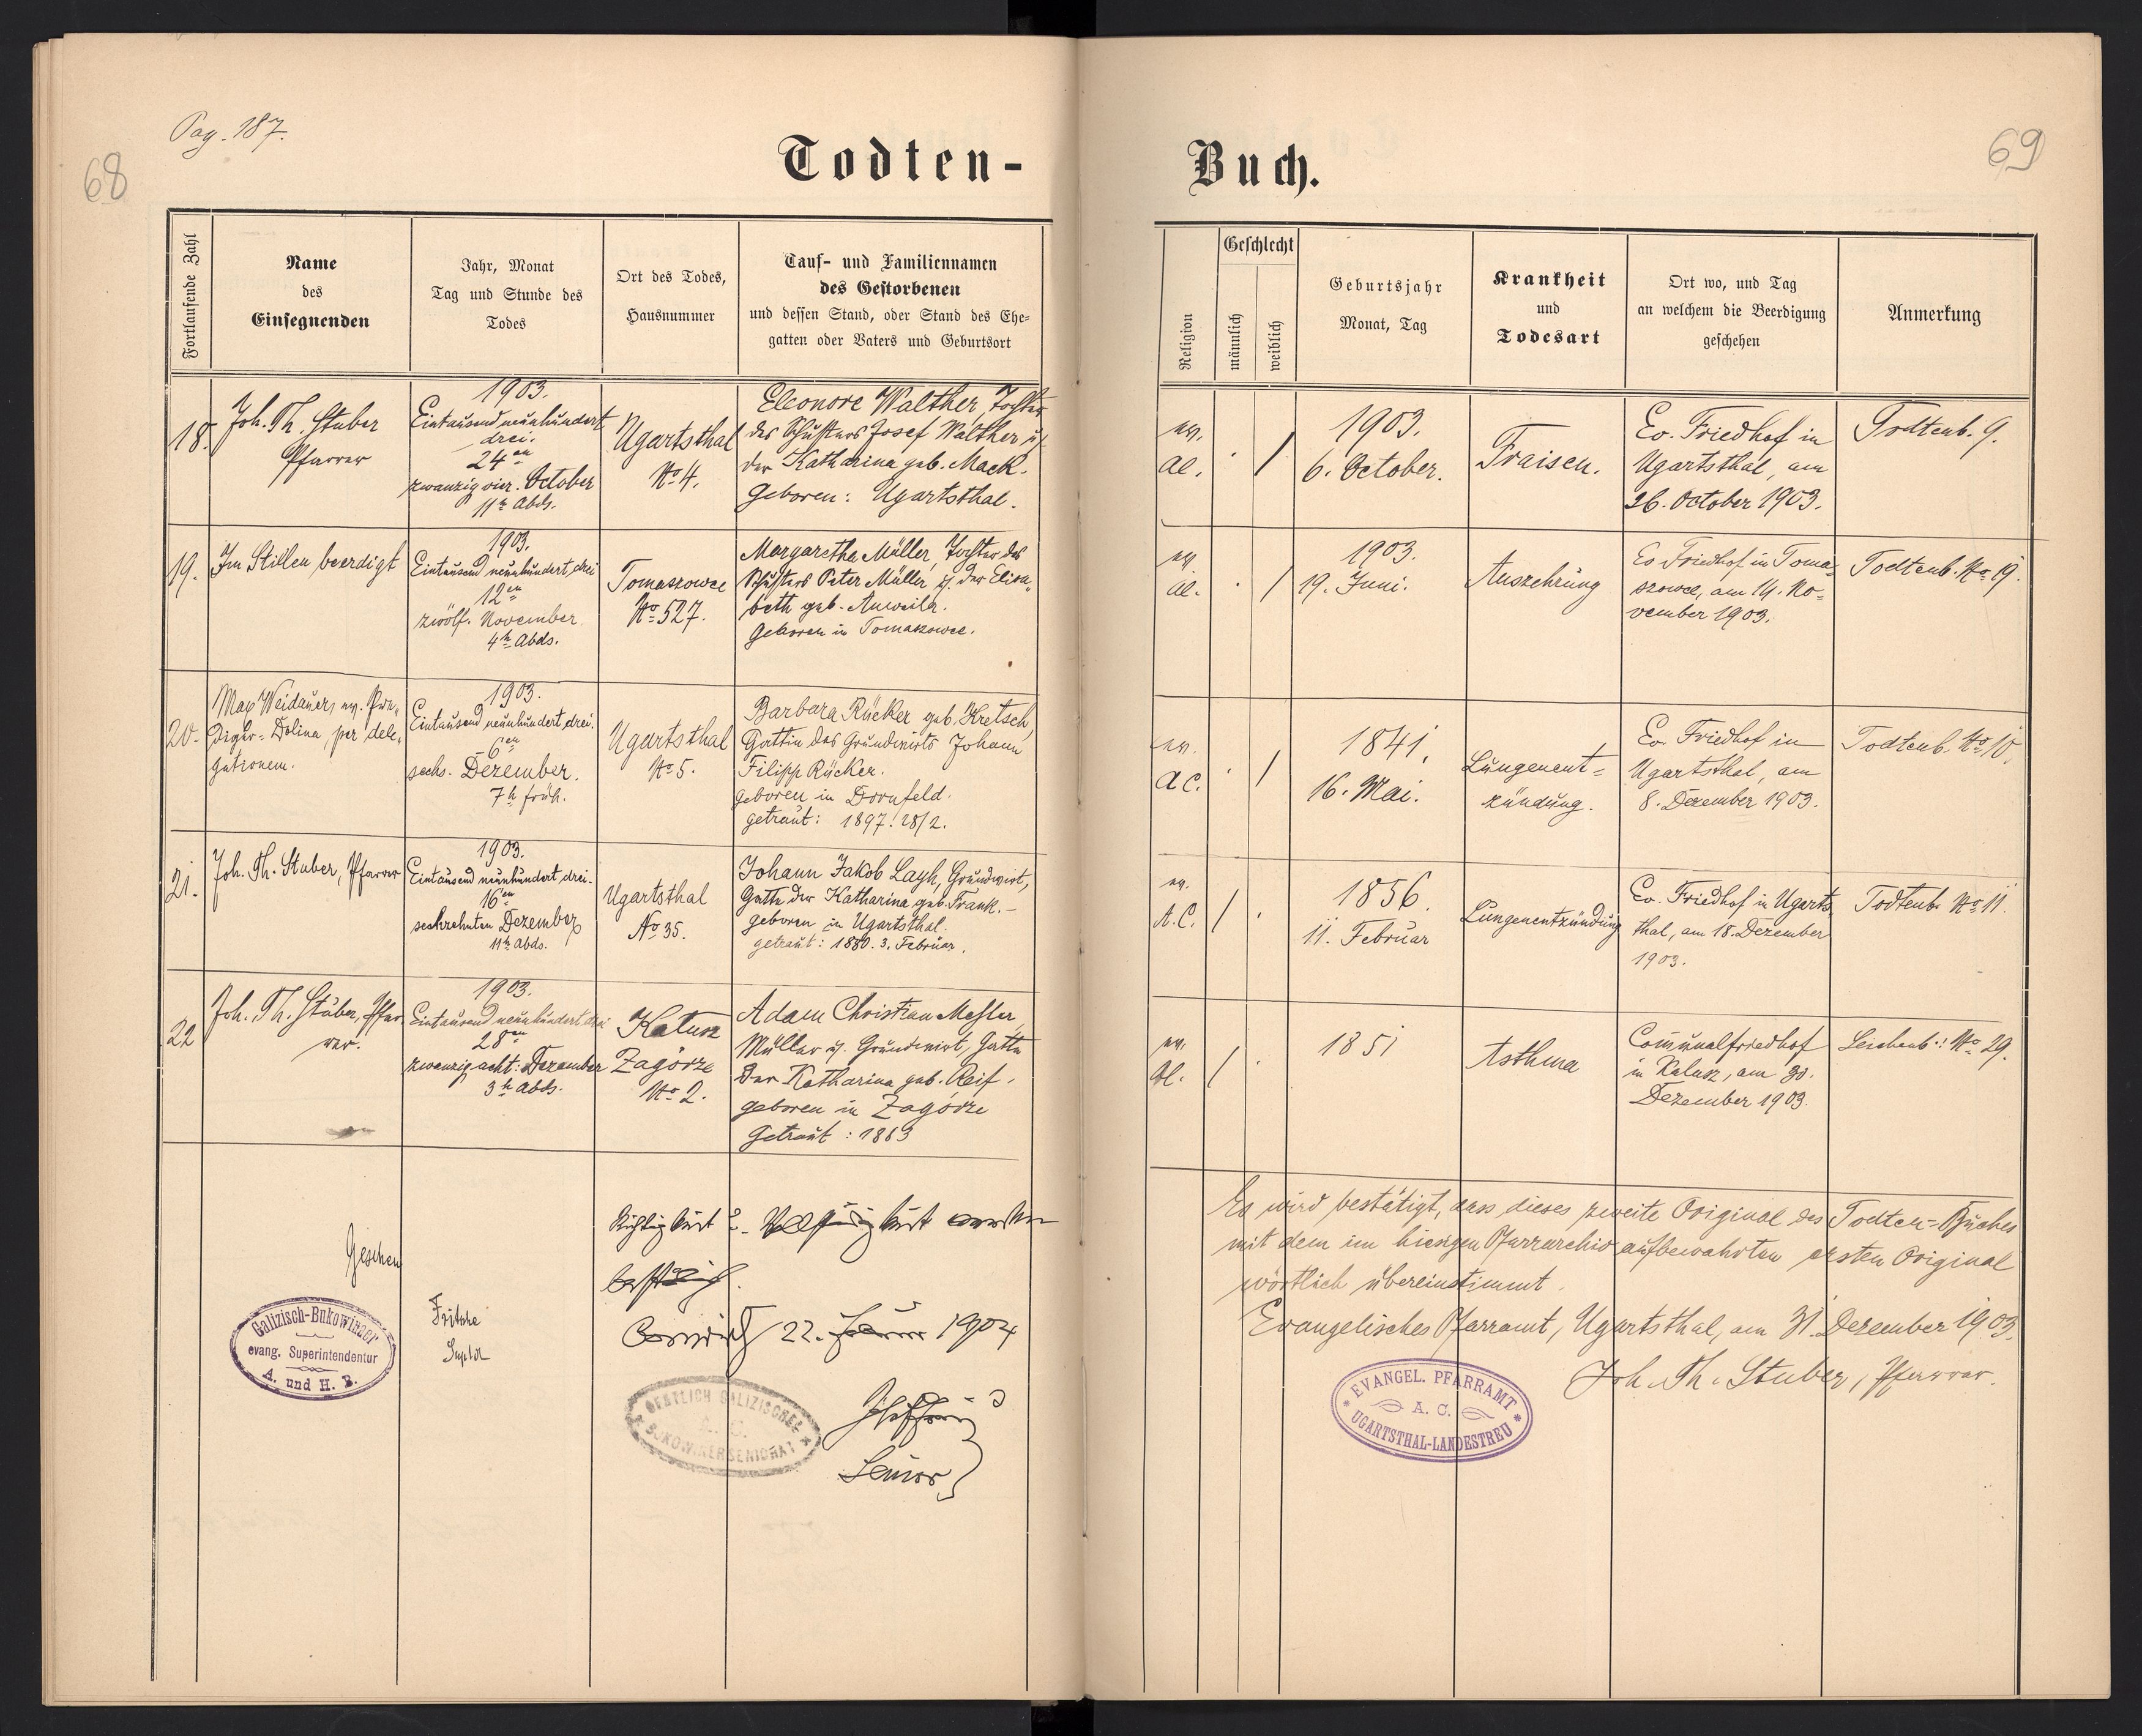 Pag. 187.
68
Todten-
Fortlaufende Zahl
Name
des
Einsegnenden
Jahr, Monat
Tag und Stunde des
Todes
Ort des Todes,
Hausnummer
Tauf- und Familiennamen
des Gestorbenen
und dessen Stand, oder Stand des Ehe-
gatten oder Vaters und Geburtsort
18.
Joh. Th. Stuber
Pfarrer
1903.
Eintausend neunhundert
drei.
24en
zwanzig vier. October
11h Abds.
Ugartsthal
No 4.
Eleonore Walther, Tochter
des Schusters Josef Walther u.
der Katharina geb. Mack.
Geboren: Ugartsthal.
19.
Im Stillen beerdigt
1903.
Eintausend neunhundert drei
12en
zwölf. November
4h Abds.
Tomaszowce
No 527.
Margaretha Müller, Tochter des
Schusters Peter Müller u. der Elisa-
beth geb. Anweiler.
Geboren in Tomaszowce.
20.
Max Weidauer, ev. Pre-
diger-Dolina per dele-
gationem.
1903.
Eintausend neunhundert drei.
6en
sechs. Dezember.
7h früh.
Ugartsthal
No 5.
Barbara Rücker geb. Kretsch,
Gattin des Grundwirts Johann
Filipp Rücker.
geboren in Dornfeld.
getraut: 1897. 28/2.
21.
Joh. Th. Stuber, Pfarrer
1903.
Eintausend neunhundert drei.
16en
sechzehnten Dezember
11h Abds.
Ugartsthal
No 35.
Johann Jakob Layh, Grundwirt,
Gatte der Katharina geb. Frank.-
geboren in Ugartsthal.
getraut: 1880. 3. Februar.
22
Joh. Th. Stuber, Pfar-
rer.
1903.
Eintausend neunhundert drei
28en
zwanzig acht: Dezember
3h Abds.
Kalusz
Zagórze
No 2.
Adam Christian Meßler,
Müller u. Grundwirt, Gatte
der Katharina geb. Reif.
geboren in Zagórze
Getraut: 1883
Richtigkeit u. Vollständigkeit
22. Januar 1904
Senior
Gesehen
Fritsche
Suptdt
Galizisch-Bukowinaer
evang. Superintendentur
A. und H. B.
OESTLICH GALIZISCHES
A. C.
BUKOWINER SENIORAT
Buch.
69
Religion
Geschlecht
männlich
weiblich
Geburtsjahr
Monat, Tag
Krankheit
und
Todesart
Ort wo, und Tag
an welchem die Beerdigung
geschehen
Anmerkung
ev.
1903.
6. October.
Fraisen.
Ev. Friedhof in
Ugartsthal, am
26. October 1903.
Todtenb. 9.
ev.
1903.
19. Juni.
Auszehrung
Ev Friedhof in Toma-
szowce, am 14. No-
vember 1903.
Todtenb. No 19.
ev.
A C.
1841.
16. Mai.
Lungenent-
zündung.
Ev. Friedhof in
Ugartsthal, am
8. Dezember 1903.
Todtenb. No 10.
ev.
A. C.
1856.
11. Februar
Lungenentzündung
Ev. Friedhof in Ugarts
thal, am 18. Dezember
1903.
Todtenb. No 11.
ev.
1851
Asthma
Communalfriedhof
in Kalusz, am 30.
Dezember 1903.
Leichenb.: No 29.
Es wird bestätigt, dass dieses zweite Original des Todten-Buches
mit dem im hiesigen Pfarrarchiv aufbewahrten ersten Original
wörtlich übereinstimmt.
Evangelisches Pfarramt, Ugartsthal, am 31. Dezember 1903.
Joh. Th. Stuber, Pfarrer.
EVANGEL. PFARRAMT
A. C.
UGARTSTHAL-LANDESTREU